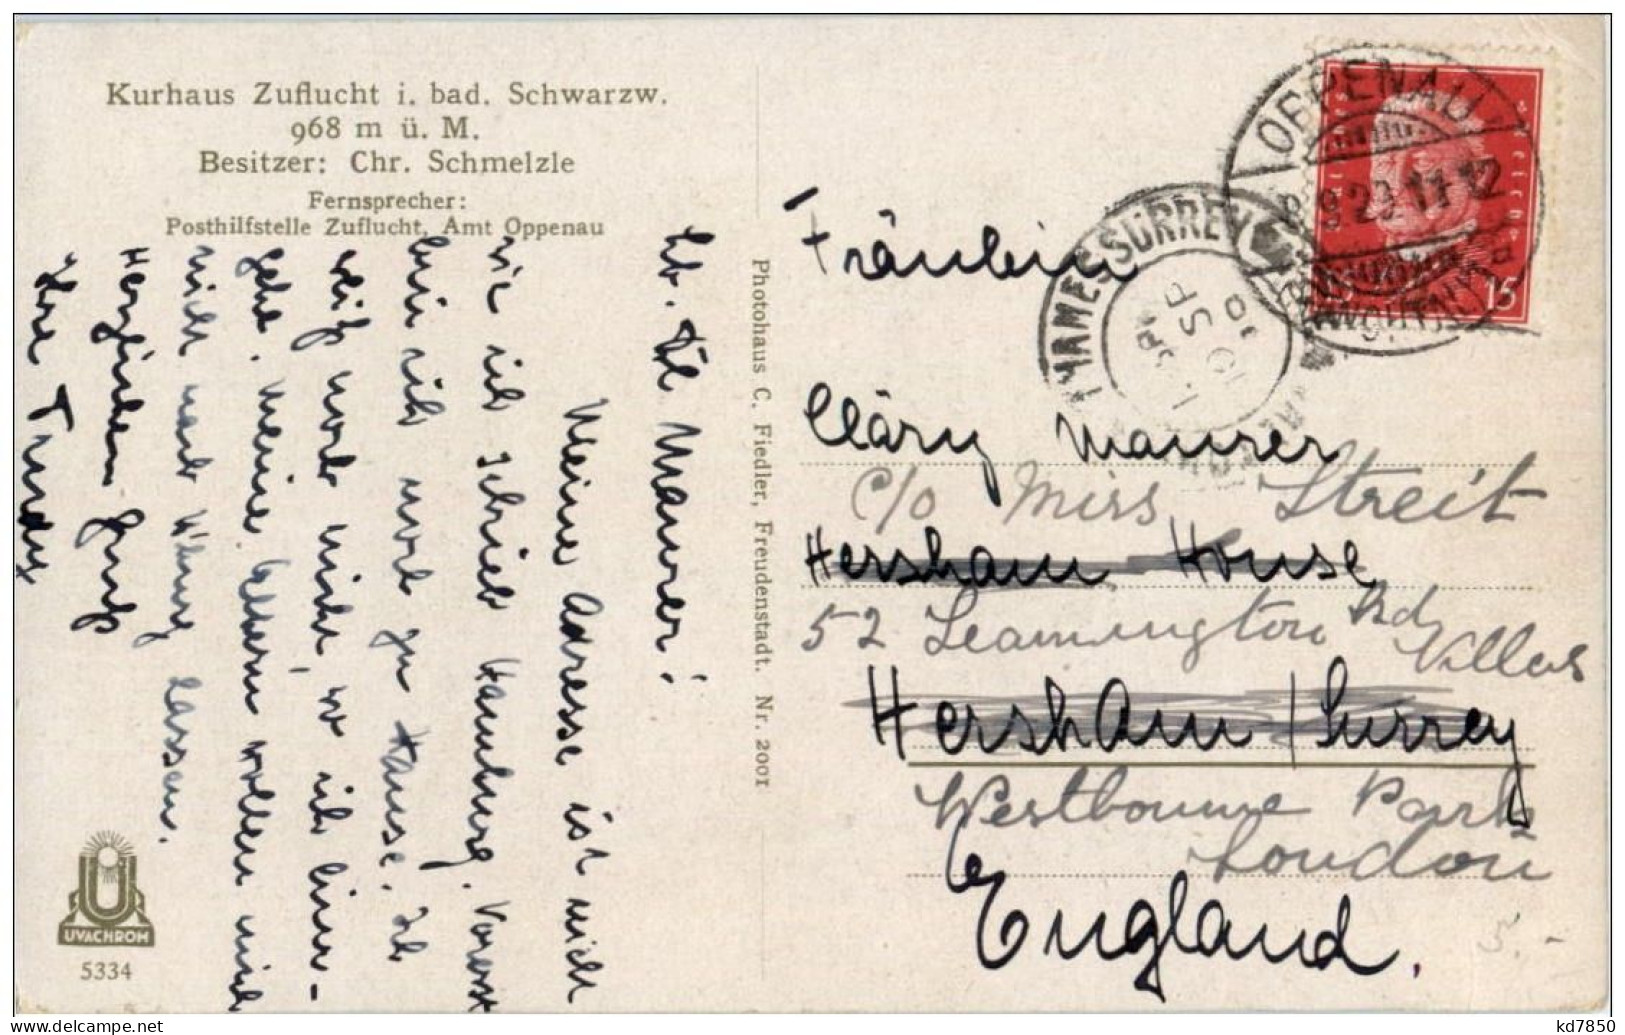 Kurhaus Zuflucht i. bad. Schwarzw.
968 m ü. M.
Besitzer: Chr. Schmelzle
Fernsprecher:
Posthilfstelle Zuflucht, Amt Oppenau
Lb. Frl. Maurer!
Meine Adresse ist nicht
wie ich schrieb Hamburg. Vorerst
bin ich noch zu Hause. Ich
weiß noch nicht, wo ich hin-
gehe. Meine Eltern wollen mich
nicht nach lassen.
Herzlichen Gruß
Ihre Trudy
Photohaus C. Fiedler, Freudenstadt. Nr. 2001
UVACHROM
5334
OPPENAU
8.9.29.11-12
15
THAMES SURREY
SP
Fräulein
Cläry Maurer
c/o Miss Streit
Hersham House
52 Leamington Rd
Villas
Hersham / Surrey
Westbourne Park
London
England.
5.-
kd7850